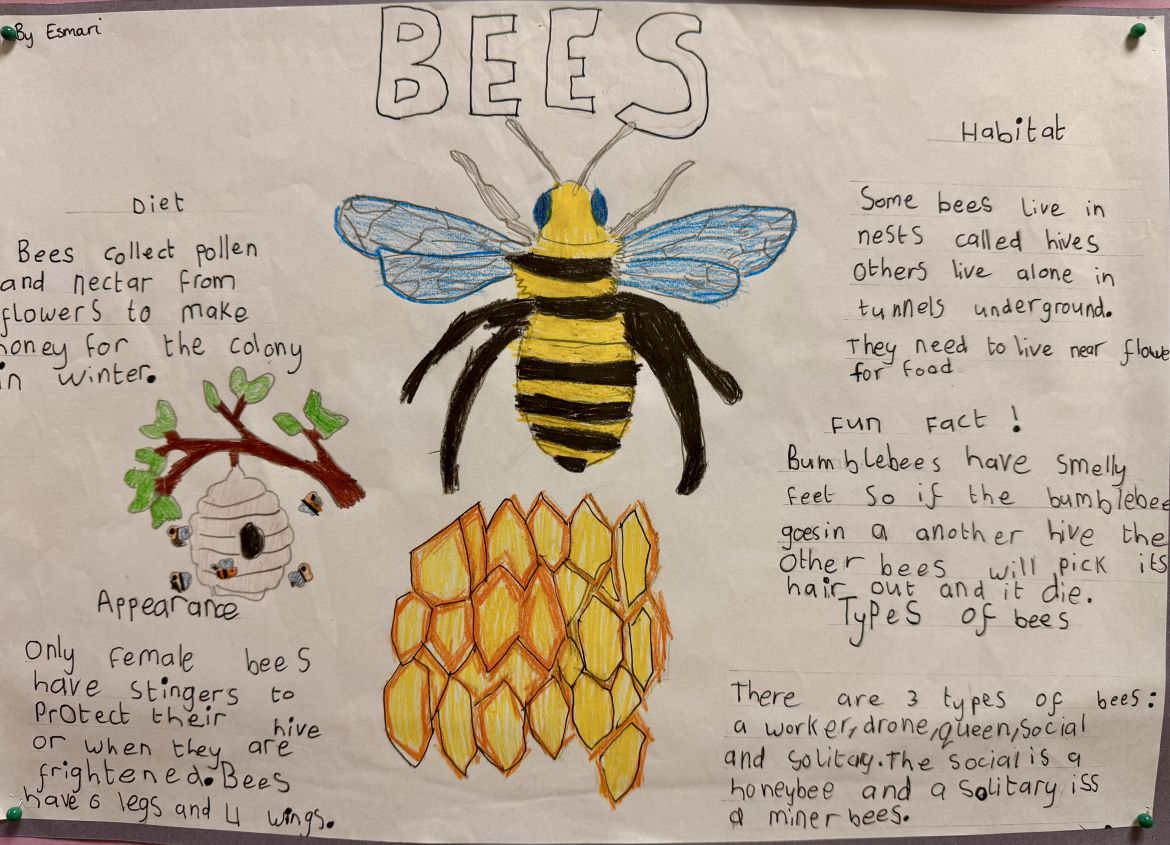 By Esmari
BEES
Diet
Bees collect pollen
and nectar from
flowers to make
honey for the colony
in winter.
Appearance
Only female bees
have stingers to
Protect their hive
or when they are
frightened. Bees
have 6 legs and 4 wings.
Habitat
Some bees live in
nests called hives
Others live alone in
tunnels underground.
They need to live near flowe
for food
Fun Fact !
Bumblebees have smelly
feet so if the bumblebee
goesin a another hive the
other bees will pick its
hair out and it die.
Types of bees
There are 3 types of bees:
a worker, drone, queen, social
and solitay. The social is a
honeybee and a solitary iss
a miner bees.